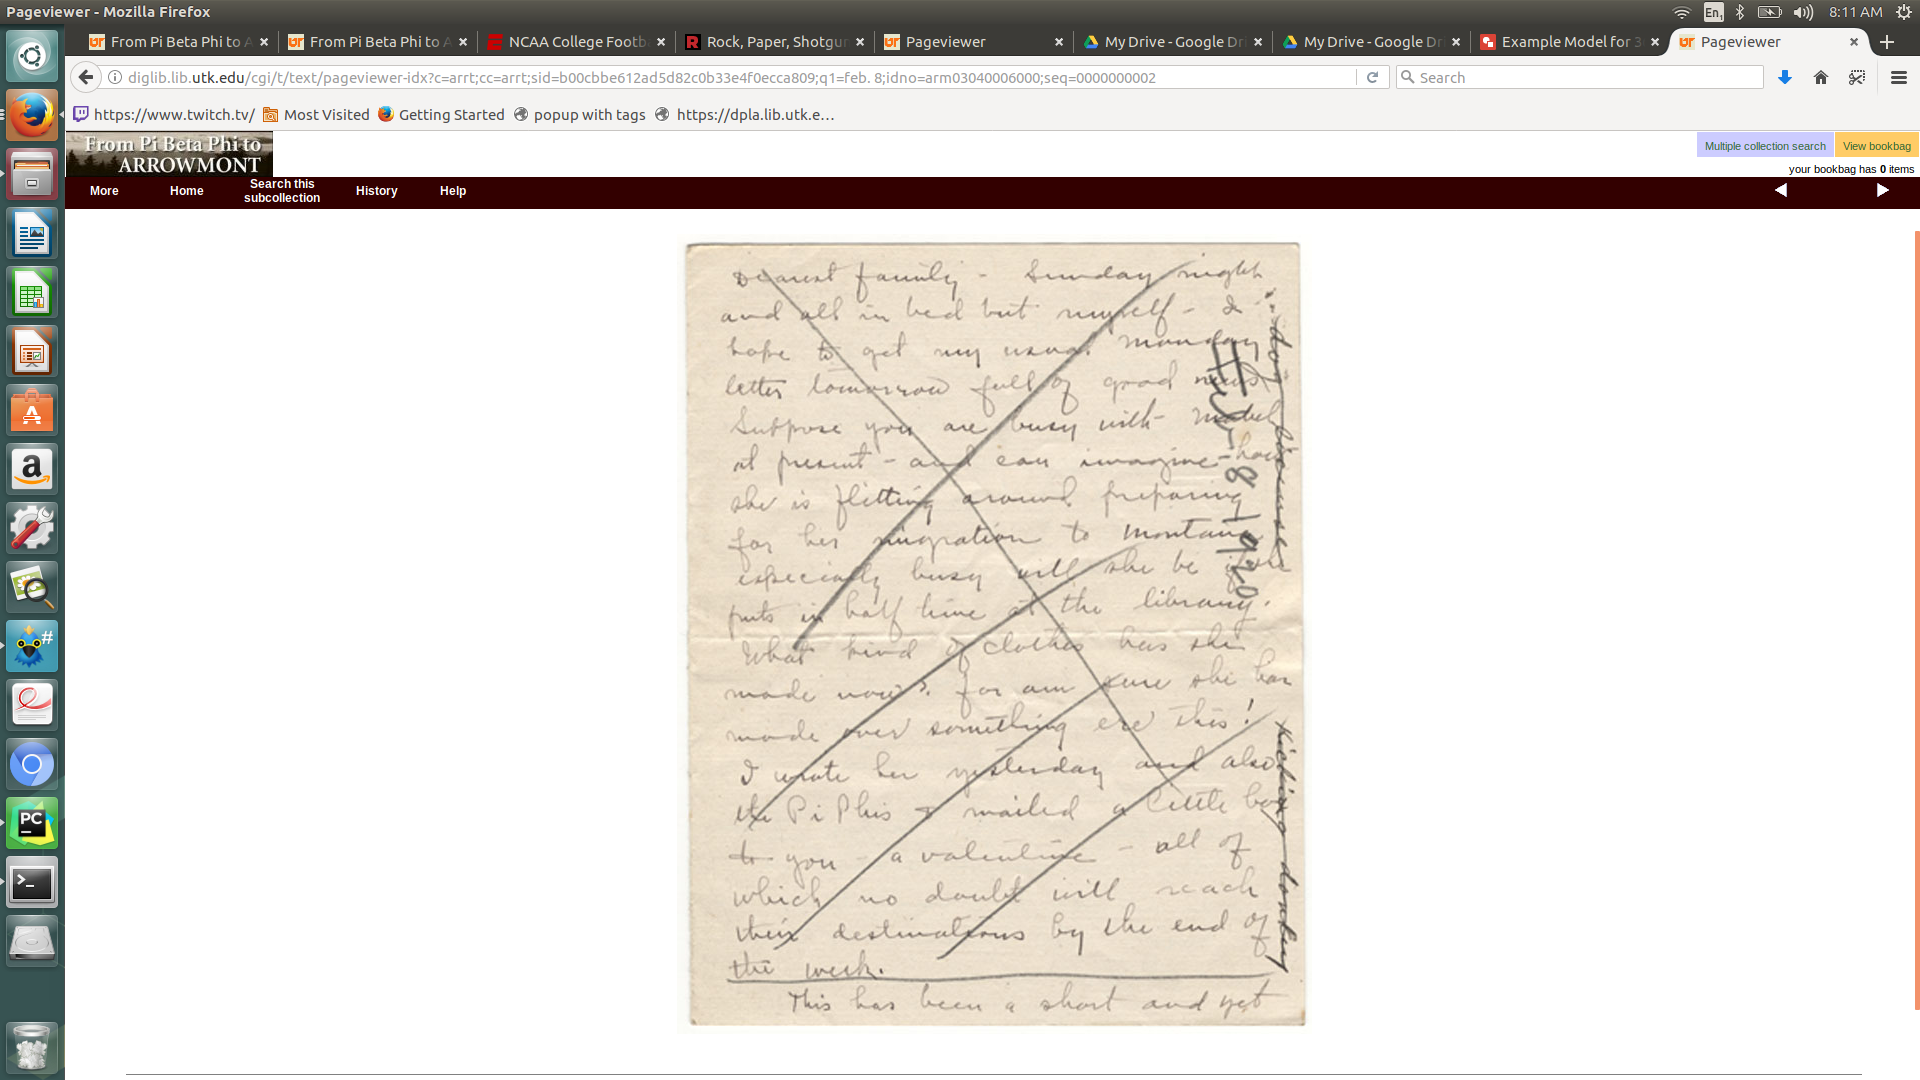 Pageviewer - Mozilla Firefox
En1
8:11 AM
From Pi Beta Phi to A
From Pi Beta Phi to A
NCAA College Footb
Rock, Paper, Shotgu
Pageviewer
My Drive - Google Dr
My Drive - Google Dr
Example Model for 3
Pageviewer
diglib.lib.utk.edu/cgi/t/text/pageviewer-idx?c=arrt;cc=arrt;sid=b00cbbe612ad5d82c0b33e4f0ecca809;q1=feb. 8;idno=arm03040006000;seq=0000000002
Search
https://www.twitch.tv/
Most Visited
Getting Started
popup with tags
https://dpla.lib.utk.e...
From Pi Beta Phi to
ARROWMONT
Multiple collection search
View bookbag
your bookbag has 0 items
More
Home
Search this
subcollection
History
Help
Dearest family - Sunday night
and all in bed but myself - I
hope to get my usual Monday
letter tomorrow full of good news.
Suppose you are busy with Mabel
at present - and can imagine how
she is flitting around preparing
for her migration to Montana
especially busy will she be if she
puts in half time at the library.
What kind of clothes has she
made now? for am sure she has
made over something ere this!
I wrote her yesterday and also
the Pi Phis & mailed a little box
to you - a valentine - all of
which no doubt will reach
their destinations by the end of
the week.
This has been a short and yet
Feb - 8 1920
Kicking donkey